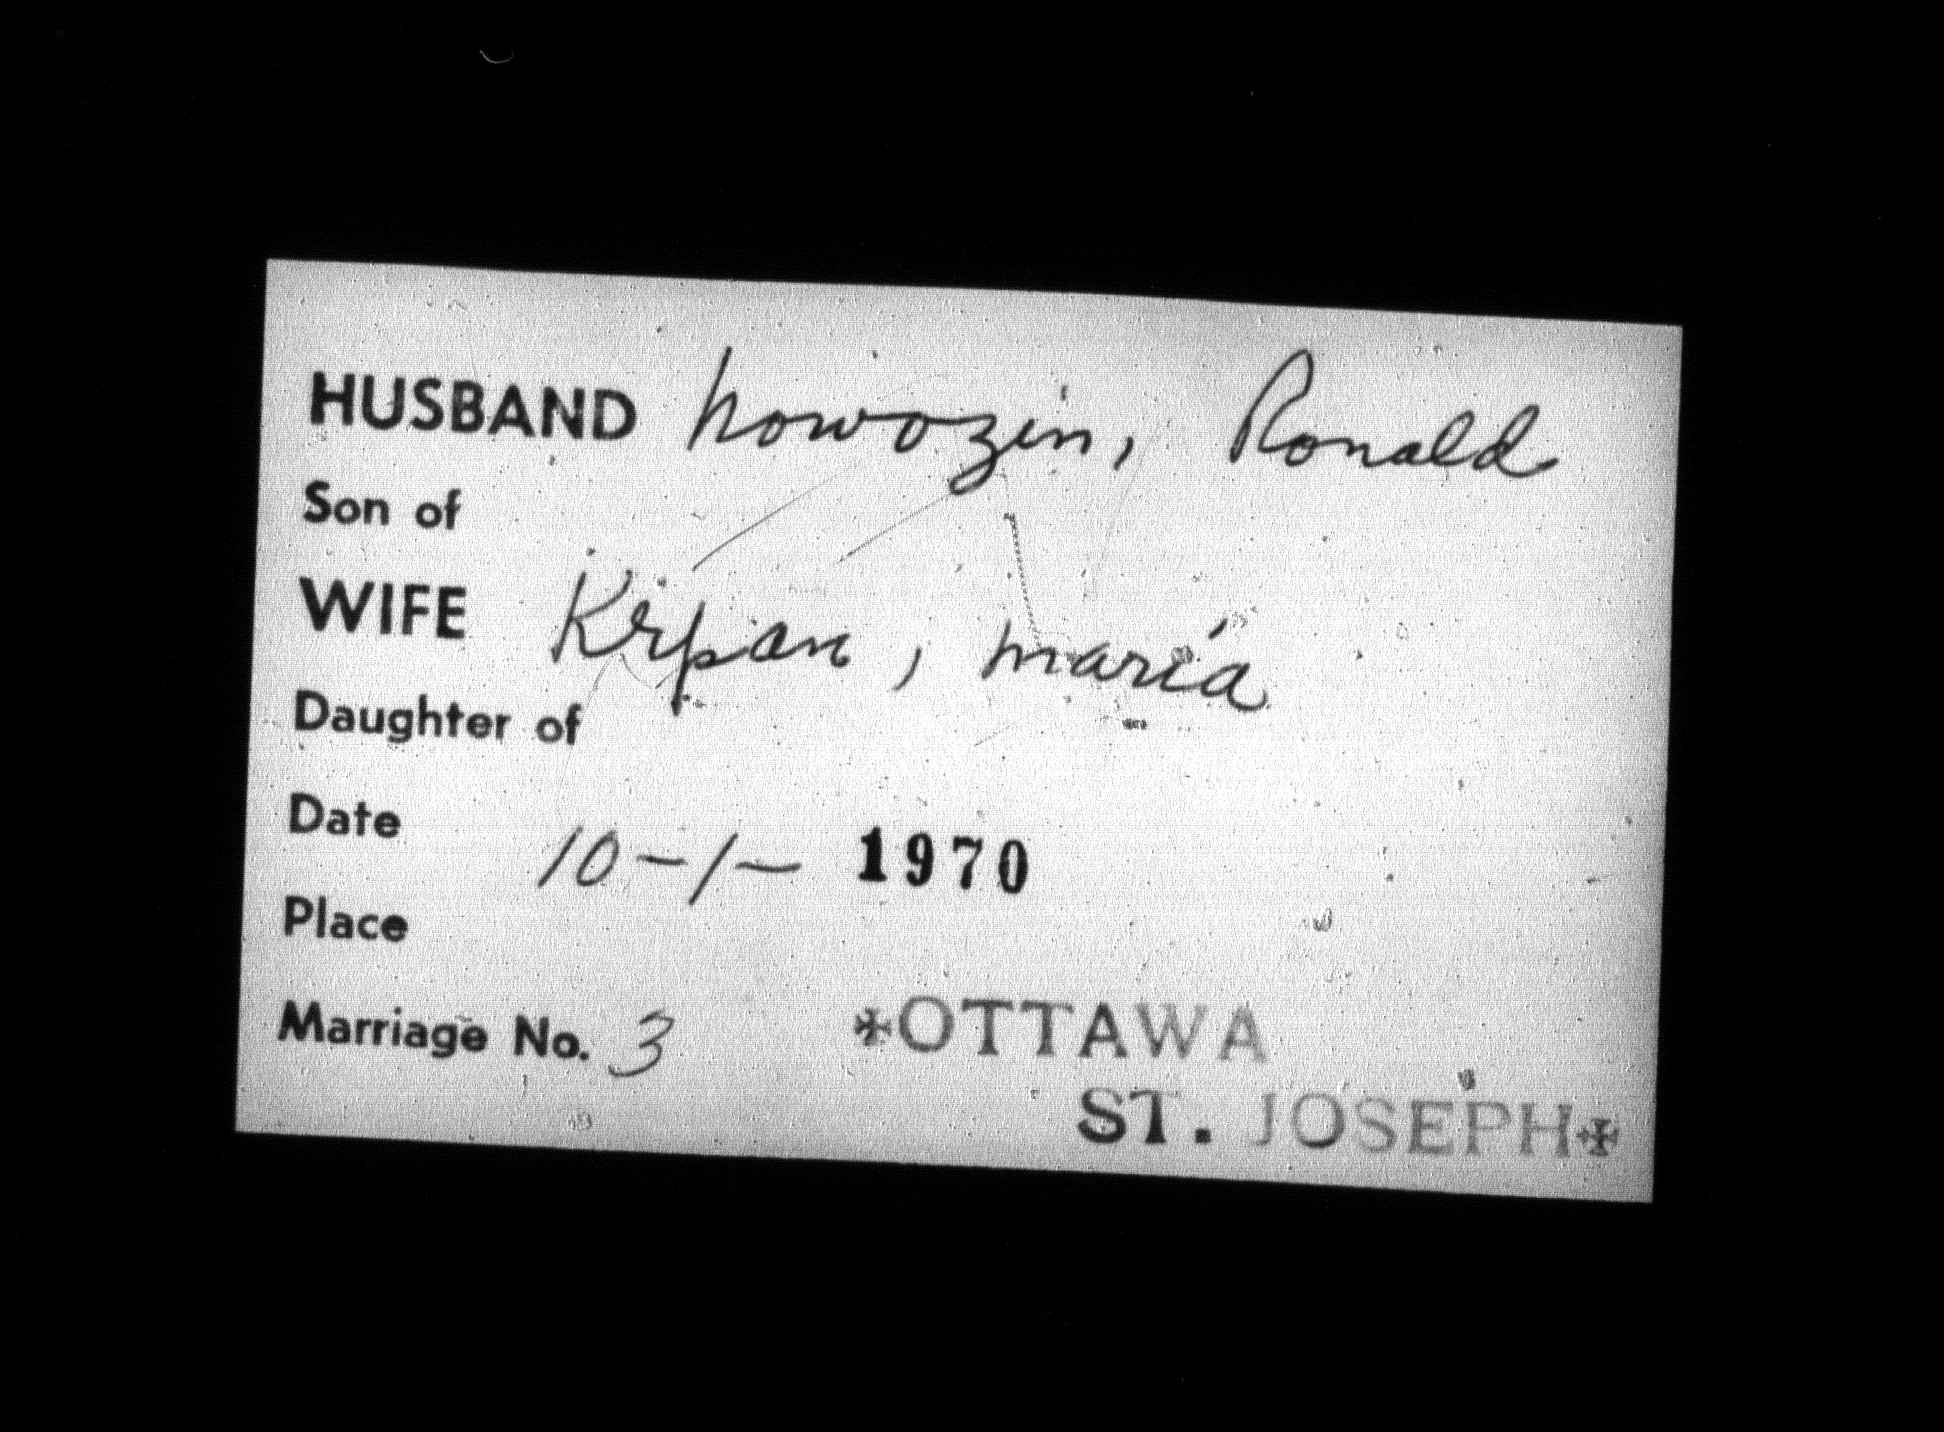 HUSBAND Nowozin, Ronald
Son of
WIFE Krpan, Maria
Daughter of
Date 10-1- 1970
Place
Marriage No. 3 ✠OTTAWA
ST. JOSEPH✠